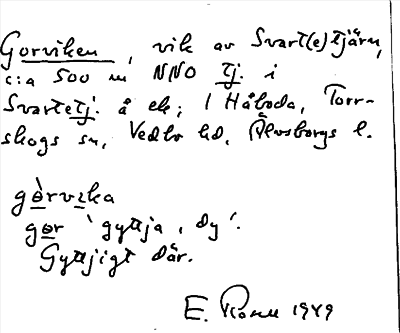 Gorviken, vik av Svart(e)tjärn,
c:a 500 m NNO tj. i
Svartetj. å ek; 1 Håbol, Torr-
skogs sn, Vedbo hd, Älvsborgs l.
gø̀rvɩka
gør 'gyttja, dy'.
Gyttjigt där.
E. 1949